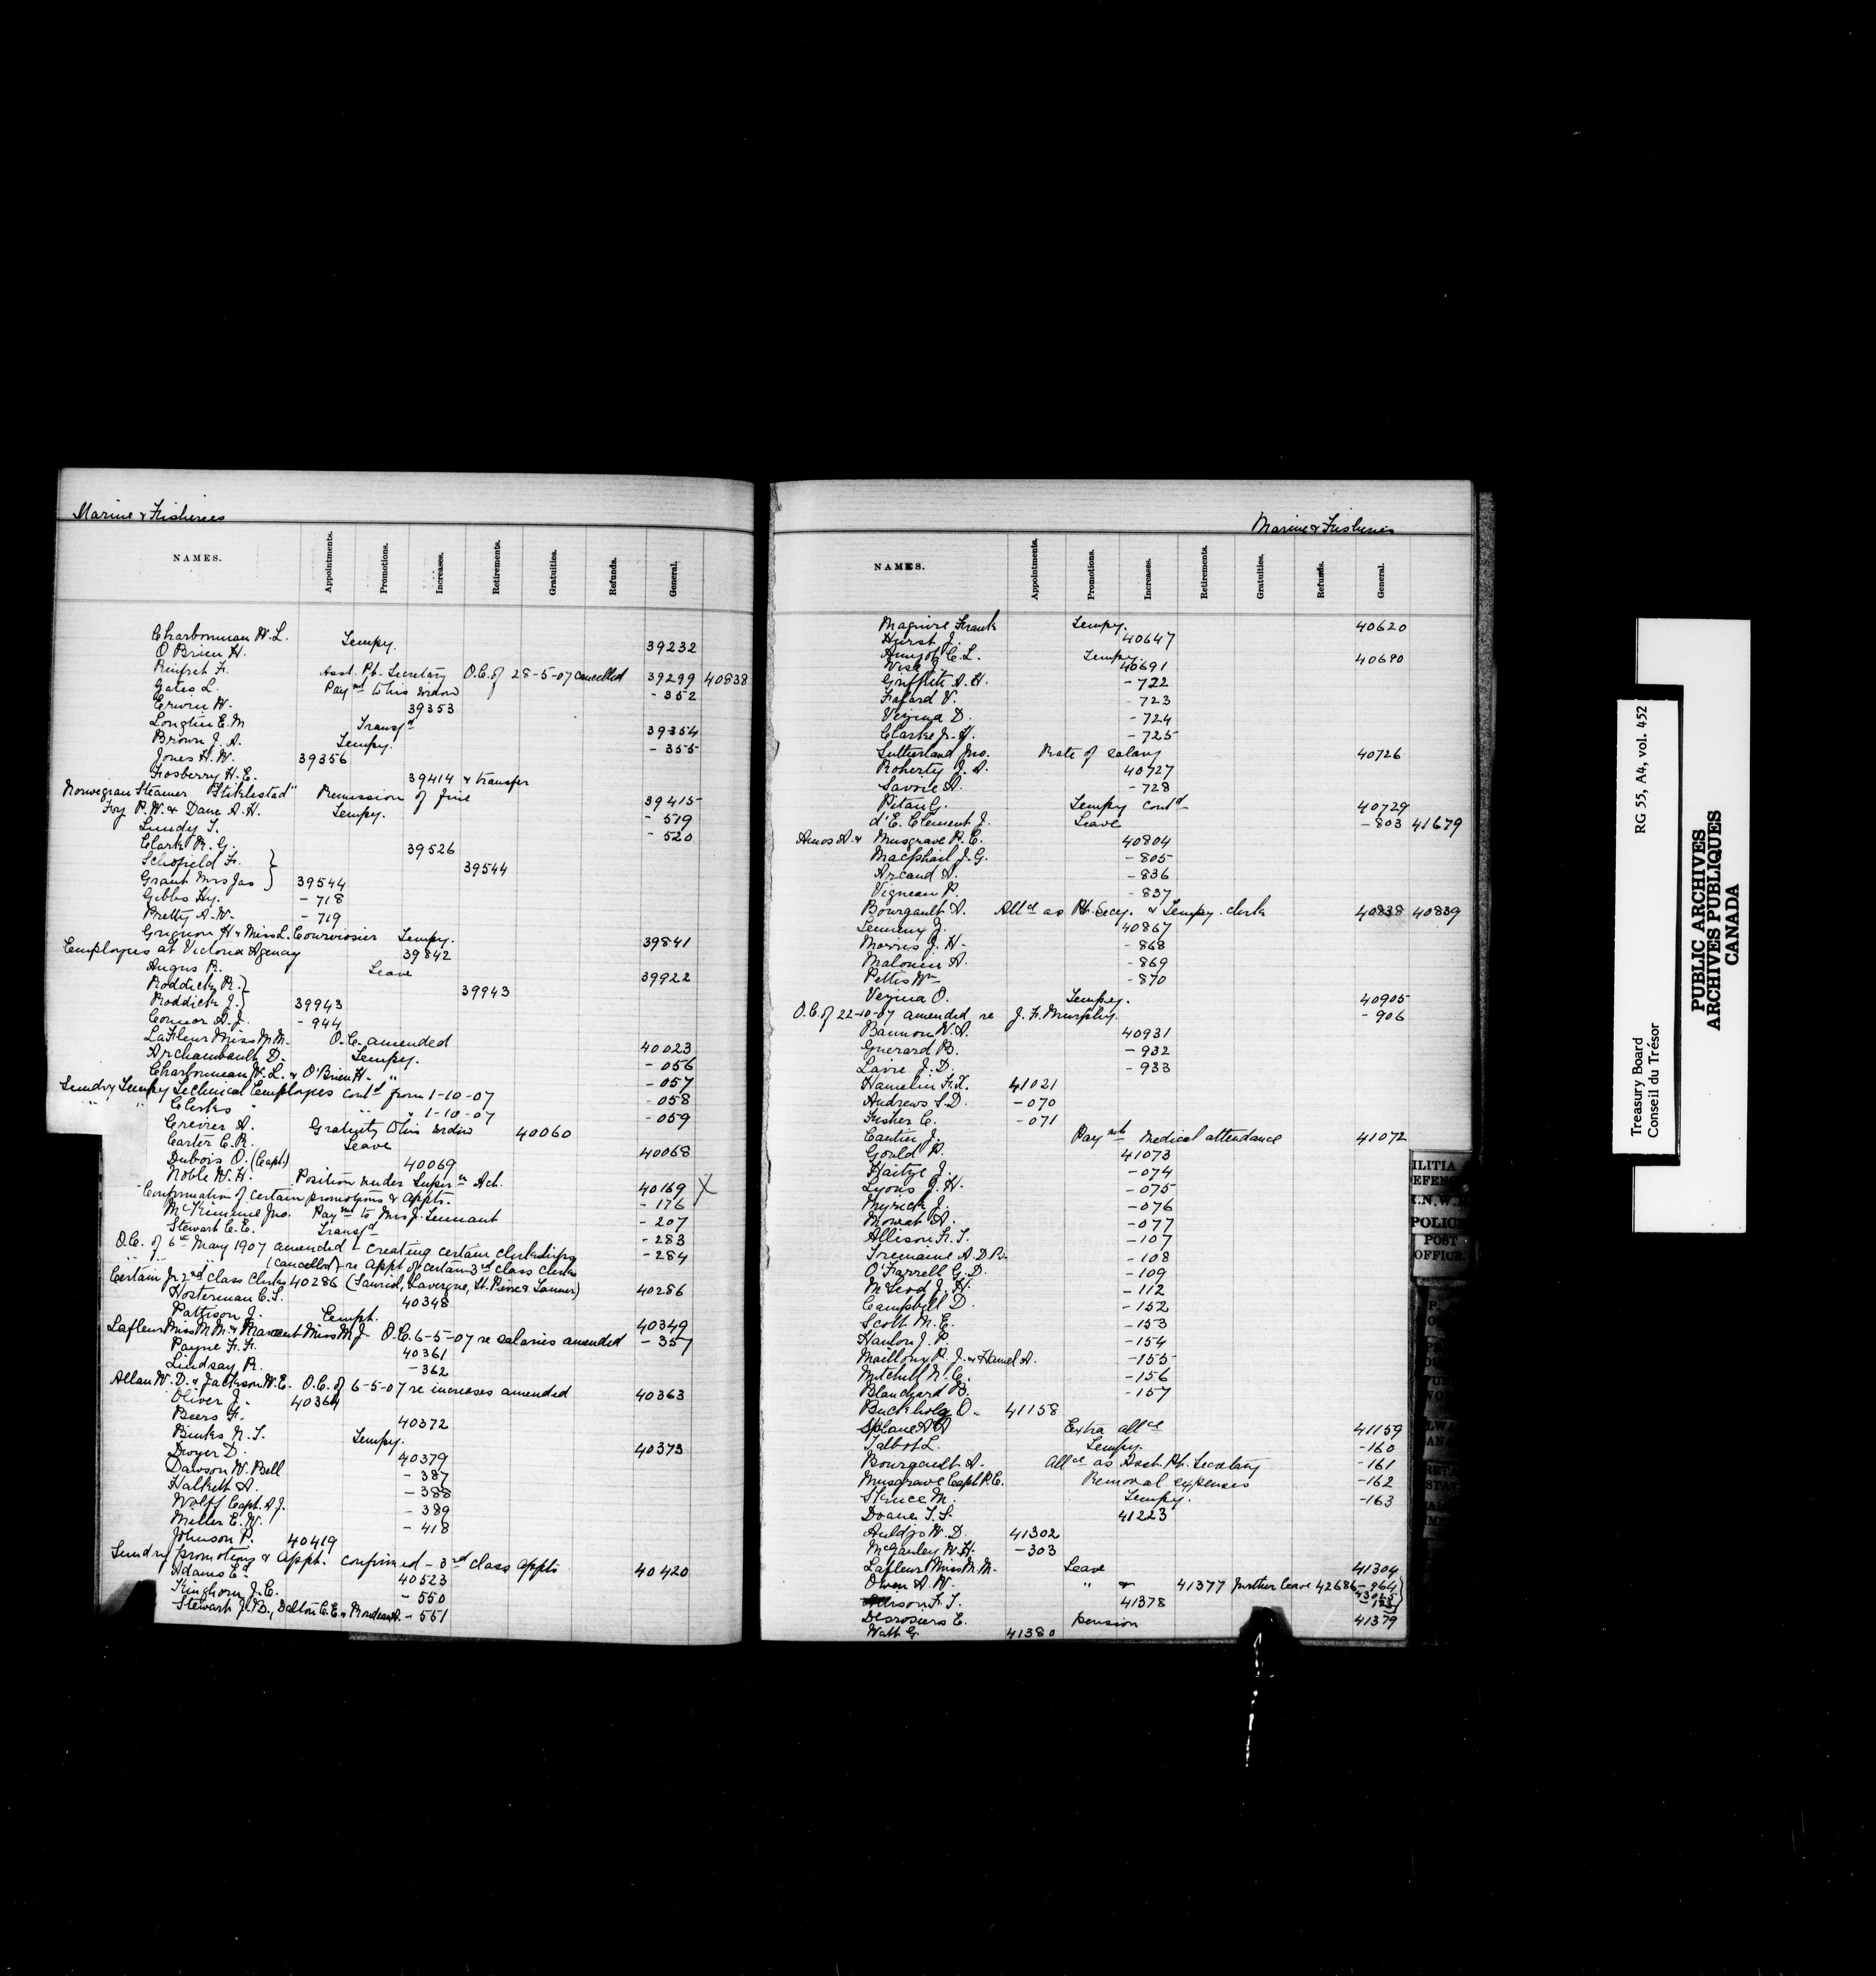 Marine & Fisheries
NAMES. Appointments. Promotions. Increases. Retirements. Gratuities. Refunds. General.
Charbonneau W. L. Tempy. 39232
O'Brien H.
Rinfret F. Asst. Pte. Secretary O.C. of 28-5-07 cancelled 39299 40838
Gates L. Paynt to his widow - 352
Erwin W. 39353
Longtin E. M Transfd 39354
Brown J. A. Tempy. - 355
Jones H. W. 39356
Fosberry H. E. 39414 & transfer
Norwegian Steamer "Stiklestad" Remission of fine 39415
Foy P. W. & Dane A. H. Tempy. - 519
Lundy T. - 520
Clark R. G. 39526
Schofield F. } 39544
Grant Mrs Jas } 39544
Gibbs Hy. - 718
Pretty A. W. - 719
Grignon H & Miss L. Courvoisier Tempy. 39841
Employees at Victoria Agency 39842
Angus R. Leave 39922
Roddick R. } 39943
Roddick J. } 39943
Connor A. J. - 944
LaFleur Miss M. M. O.C. amended 40023
Archambault D. Tempy. - 056
Charbonneau W. L. & O'Brien H. " - 057
Sundry Tempy Technical Employees contd from 1-10-07 - 058
" " Clerks " " " 1-10-07 - 059
Crevier A. Gratuity to his widow 40060
Carter C. R. Leave 40068
Dubois O. (Capt.) 40069
Noble W. H. Position under Supern Act. 40169 X
Confirmation of certain promotions & appts. - 176
McKimmie Jno. Paynt to Mrs J. Tennant - 207
Stewart C. E. Transfd - 283
O.C. of 6th May 1907 amended - creating certain clerkships - 284
" " (cancelled) re appt of certain 3rd class clerks
Certain Jr 2nd class clerks 40286 (Lavergne, St. Pierre & Tanner) 40286
Hosterman C. S. 40348
Pattison J. Tempt. 40349
Lafleur Miss M. M. & Miss M. J. O.C. 6-5-07 re salaries amended - 357
Payne F. F. 40361
Lindsay R. - 362
Allan W. D. & Jackson W. E. O.C. of 6-5-07 re increases amended 40363
Oliver J. 40364
Beers F. 40372
Binks N. T. Tempy. 40373
Dwyer D. 40379
Dawson W. Bell - 387
Halkett A. - 388
Wolff Capt. A. J. - 389
Miller E. W. - 418
Johnson P. 40419
Sundry promotions & appt. confirmed - 3rd class appts 40420
Adams Ed. 40523
Kinghorn J. C. - 550
Stewart J. B., Dalton C. E. & - 551
Marine & Fisheries
NAMES. Appointments. Promotions. Increases. Retirements. Gratuities. Refunds. General.
Maguire Frank Tempy. 40620
Hurst J. 40647
C. L. Tempy. 40690
40691
Griffith A. H. - 722
Fafard V. - 723
Vezina D. - 724
Clarke - 725
Sutherland Jno. Rate of salary 40726
Roherty J. A. 40727
Savoie A. - 728
Pitau G. Tempy contd 40729
d'E. Clement J. Leave - 803 41679
Amos A. & Musgrave P. C. 40804
Macphail J. G. - 805
Arcand A. - 836
Vigneau P. - 837
Bourgault A. Allce as Pte. Secy. & Tempy. clerk 40838 40839
Lemieux J. 40867
Morris J. H. - 868
Malouin A. - 869
Pettis Wm - 870
Vezina O. Tempy. 40905
O.C. of 22-10-07 amended re J. F. Murphy. - 906
Bannon W. A. 40931
Guerard B. - 932
J. D. - 933
Hamelin F. X. 41021
Andrews S. D. - 070
Fisher C. - 071
Cantin J. Paynt Medical attendance 41072
Gould R. 41073
J. - 074
Lyons J. H. - 075
Myrick J. - 076
Mowat A. - 077
Allison F. T. - 107
Tremaine A. D. R. - 108
O'Farrell G. D. - 109
McLeod J. H. - 112
Campbell D. - 152
Scott M. E. - 153
Hanlon J. P. - 154
Mailloux R. J. & Hamel A. - 155
Mitchell N. C. - 156
Blanchard B. - 157
Buckholz O. 41158
Splane A. A Extra allce 41159
Talbot L. Tempy. - 160
Bourgault A. Allce as Asst. Pte. Secretary - 161
Musgrave Capt P. C. Removal expenses - 162
M. Tempy. - 163
Doane T. S. 41223
Auldjo W. D. 41302
McGauley W. H. - 303
Lafleur Miss M. M. Leave 41304
Owen A. W. " & 41377 further leave 42686 - 964 }
Allison F. T. 41378
Desrosiers E. pension 41379
Watt G. 41380
ILITIA
DEFENCE
POLICE
POST
OFFICE
Treasury Board RG 55, A4, vol. 452
Conseil du Trésor
PUBLIC ARCHIVES
ARCHIVES PUBLIQUES
CANADA